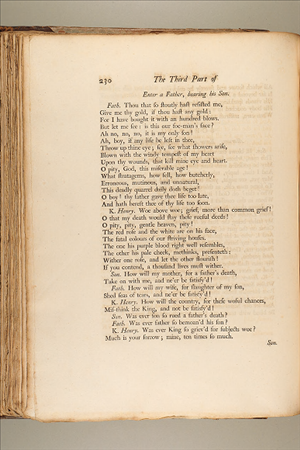 230 The Third Part of
Enter a Father, bearing his Son.
Fath. Thou that so stoutly hast resisted me,
Give me thy gold, if thou hast any gold:
For I have bought it with an hundred blows.
But let me see: is this our foe-man's face?
Ah no, no, no, it is my only son!
Ah, boy, if any life be left in thee,
Throw up thine eye; see, see what showers arise,
Blown with the windy tempest of my heart
Upon thy wounds, that kill mine eye and heart.
O pity, God, this miserable age!
What stratagems, how fell, how butcherly,
Erroneous, mutinous, and unnatural,
This deadly quarrel daily doth beget!
O boy! thy father gave thee life too late,
And hath bereft thee of thy life too soon.
K. Henry. Woe above woe; grief, more than common grief!
O that my death would stay these rueful deeds!
O pity, pity, gentle heaven, pity!
The red rose and the white are on his face,
The fatal colours of our striving houses.
The one his purple blood right well resembles,
The other his pale cheek, methinks, presenteth:
Wither one rose, and let the other flourish!
If you contend, a thousand lives must wither.
Son. How will my mother, for a father's death,
Take on with me, and ne'er be satisfy'd!
Fath. How will my wife, for slaughter of my son,
Shed seas of tears, and ne'er be satisfy'd!
K. Henry. How will the country, for these woful chances,
Mis-think the King, and not be satisfy'd!
Son. Was ever son so rued a father's death?
Fath. Was ever father so bemoan'd his son?
K. Henry. Was ever King so griev'd for subjects woe?
Much is your sorrow; mine, ten times so much.
Son.